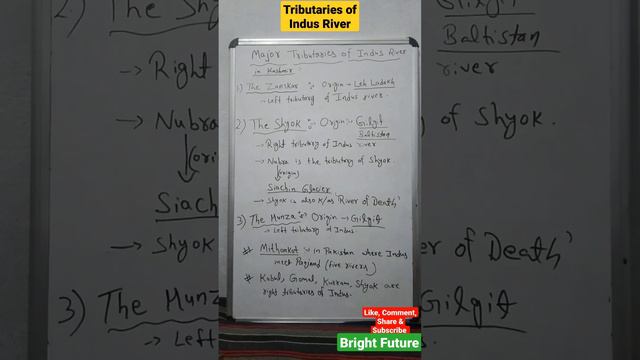 Tributaries of
Indus River
Major Tributaries of Indus River
in Kashmir :
1) The Zanskar :- Origin - Leh Ladakh
→ Left tributary of Indus river.
2) The Shyok :- Origin :- Gilgit
Baltistan
→ Right tributary of Indus river
→ Nubra is the tributary of Shyok.
(origin)
Siachin Glacier
→ Shyok is also k/as 'River of Death'
3) The Hunza :- Origin → Gilgit
→ Left tributary of Indus
# Mithankot :- in Pakistan where Indus
meet Panjnad (five rivers)
# Kabul, Gomal, Kurram, Shyok are
right tributaries of Indus.
Like, Comment,
Share &
Subscribe
Bright Future
2) The Sh
→ Right
→ Nubra
(ori
Siach
→ Shyok
3) The Hunz
→ Left
Gilgit
Baltistan
river
of Shyok.
er of Death'
Gilgit